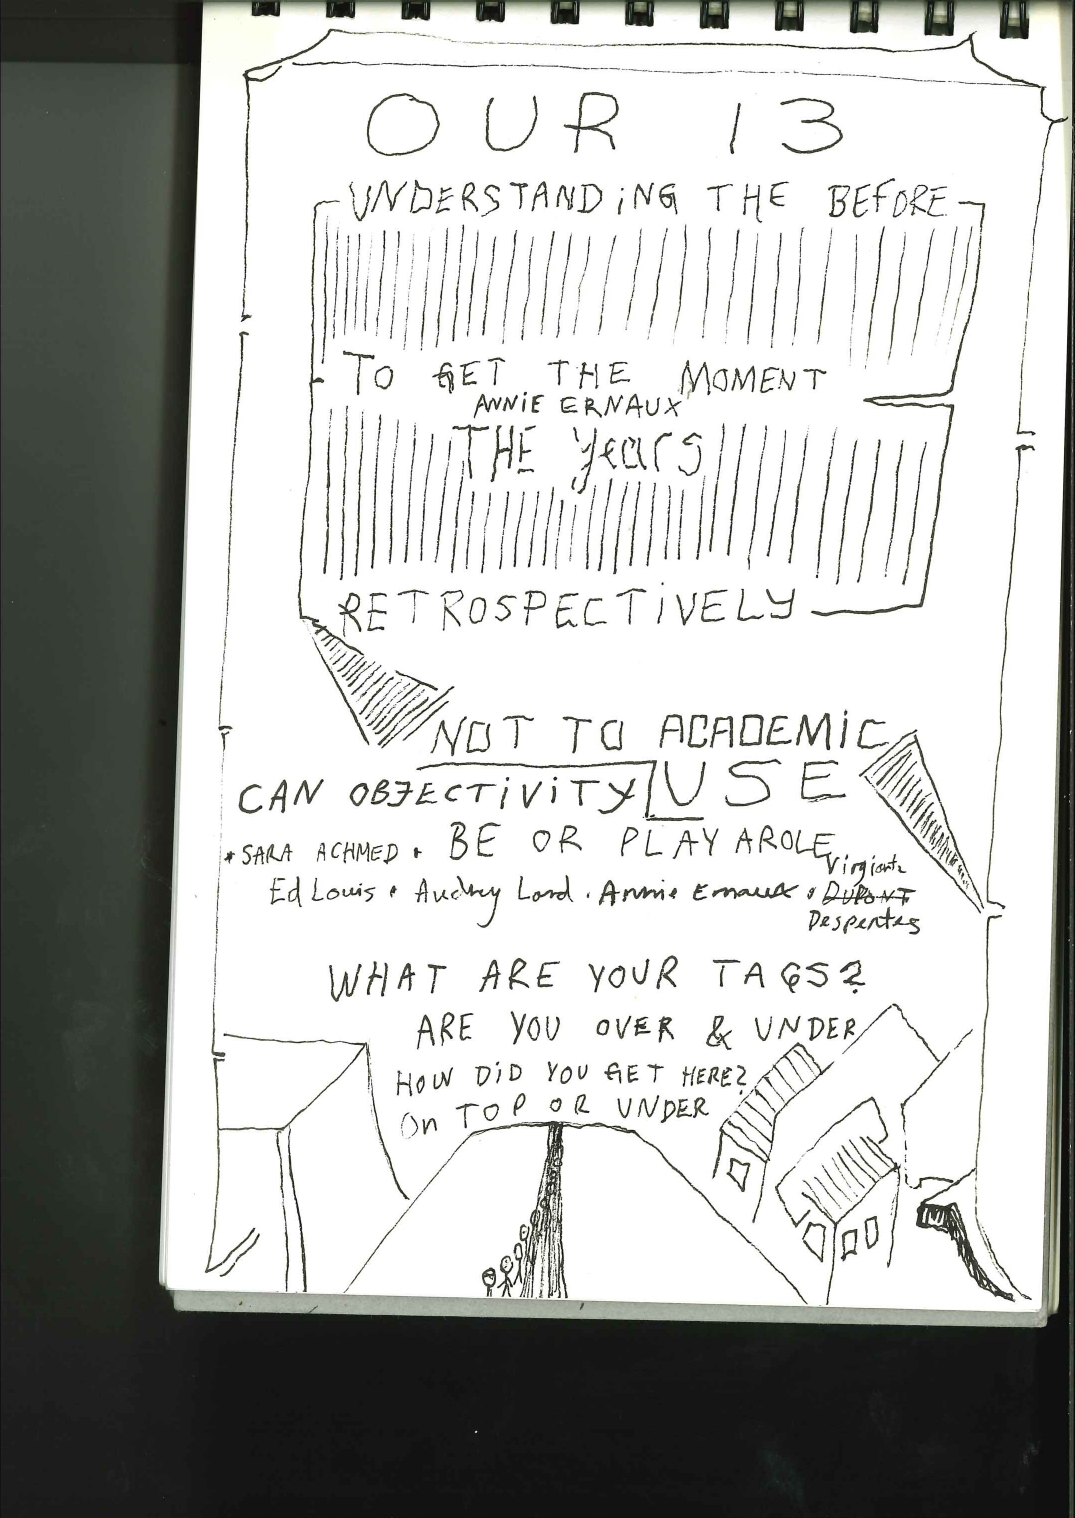 OUR 13
UNDERSTANDING THE BEFORE
TO GET THE MOMENT
ANNIE ERNAUX
THE Years
RETROSPECTIVELY
NOT TO ACADEMIC
CAN OBJECTIVITY USE
BE OR PLAY A ROLE
• SARA ACHMED •
Virgiante
Ed Louis • Audrey Lord • Annie Ernaux • DUPONT
Despentes
WHAT ARE YOUR TAGS?
ARE YOU OVER & UNDER
HOW DID YOU GET HERE?
On TOP OR UNDER